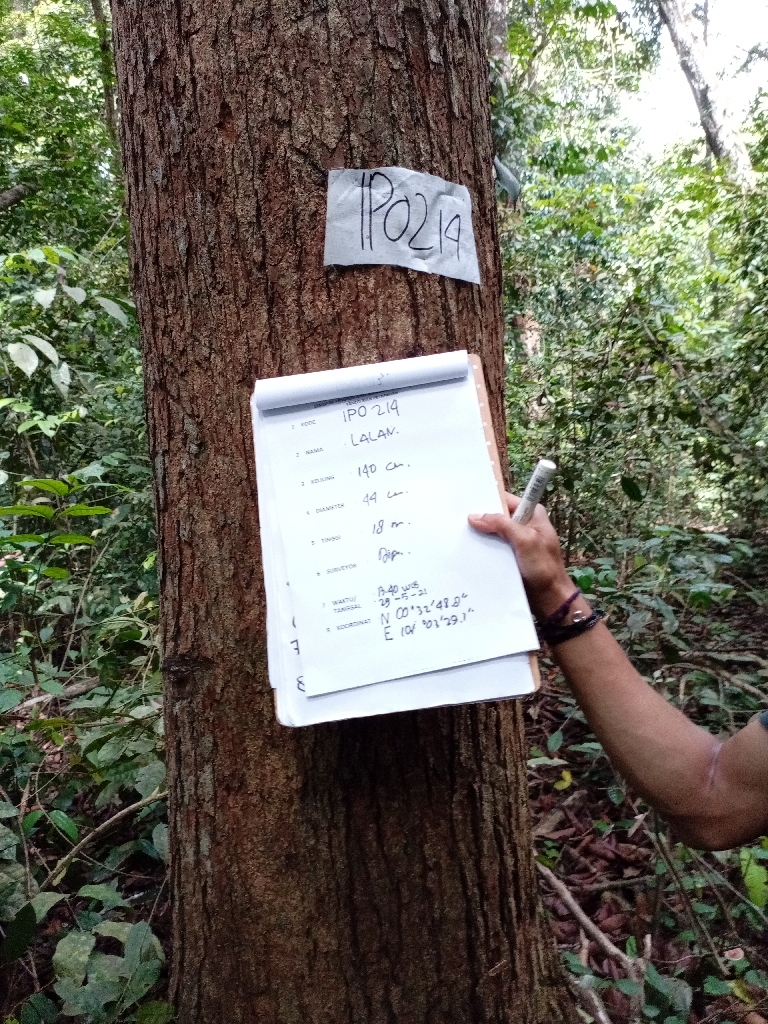 IPO214
1 KODE IPO 214
2 NAMA LALAN.
3 KELILING 140 cm.
4 DIAMETER 44 cm.
5 TINGGI 18 m.
6 SURVEYOR
7 WAKTU/ 13.40 WIB
TANGGAL 29-5-21
8 KOORDINAT N 00°32'48.8"
E 101°03'29.1"